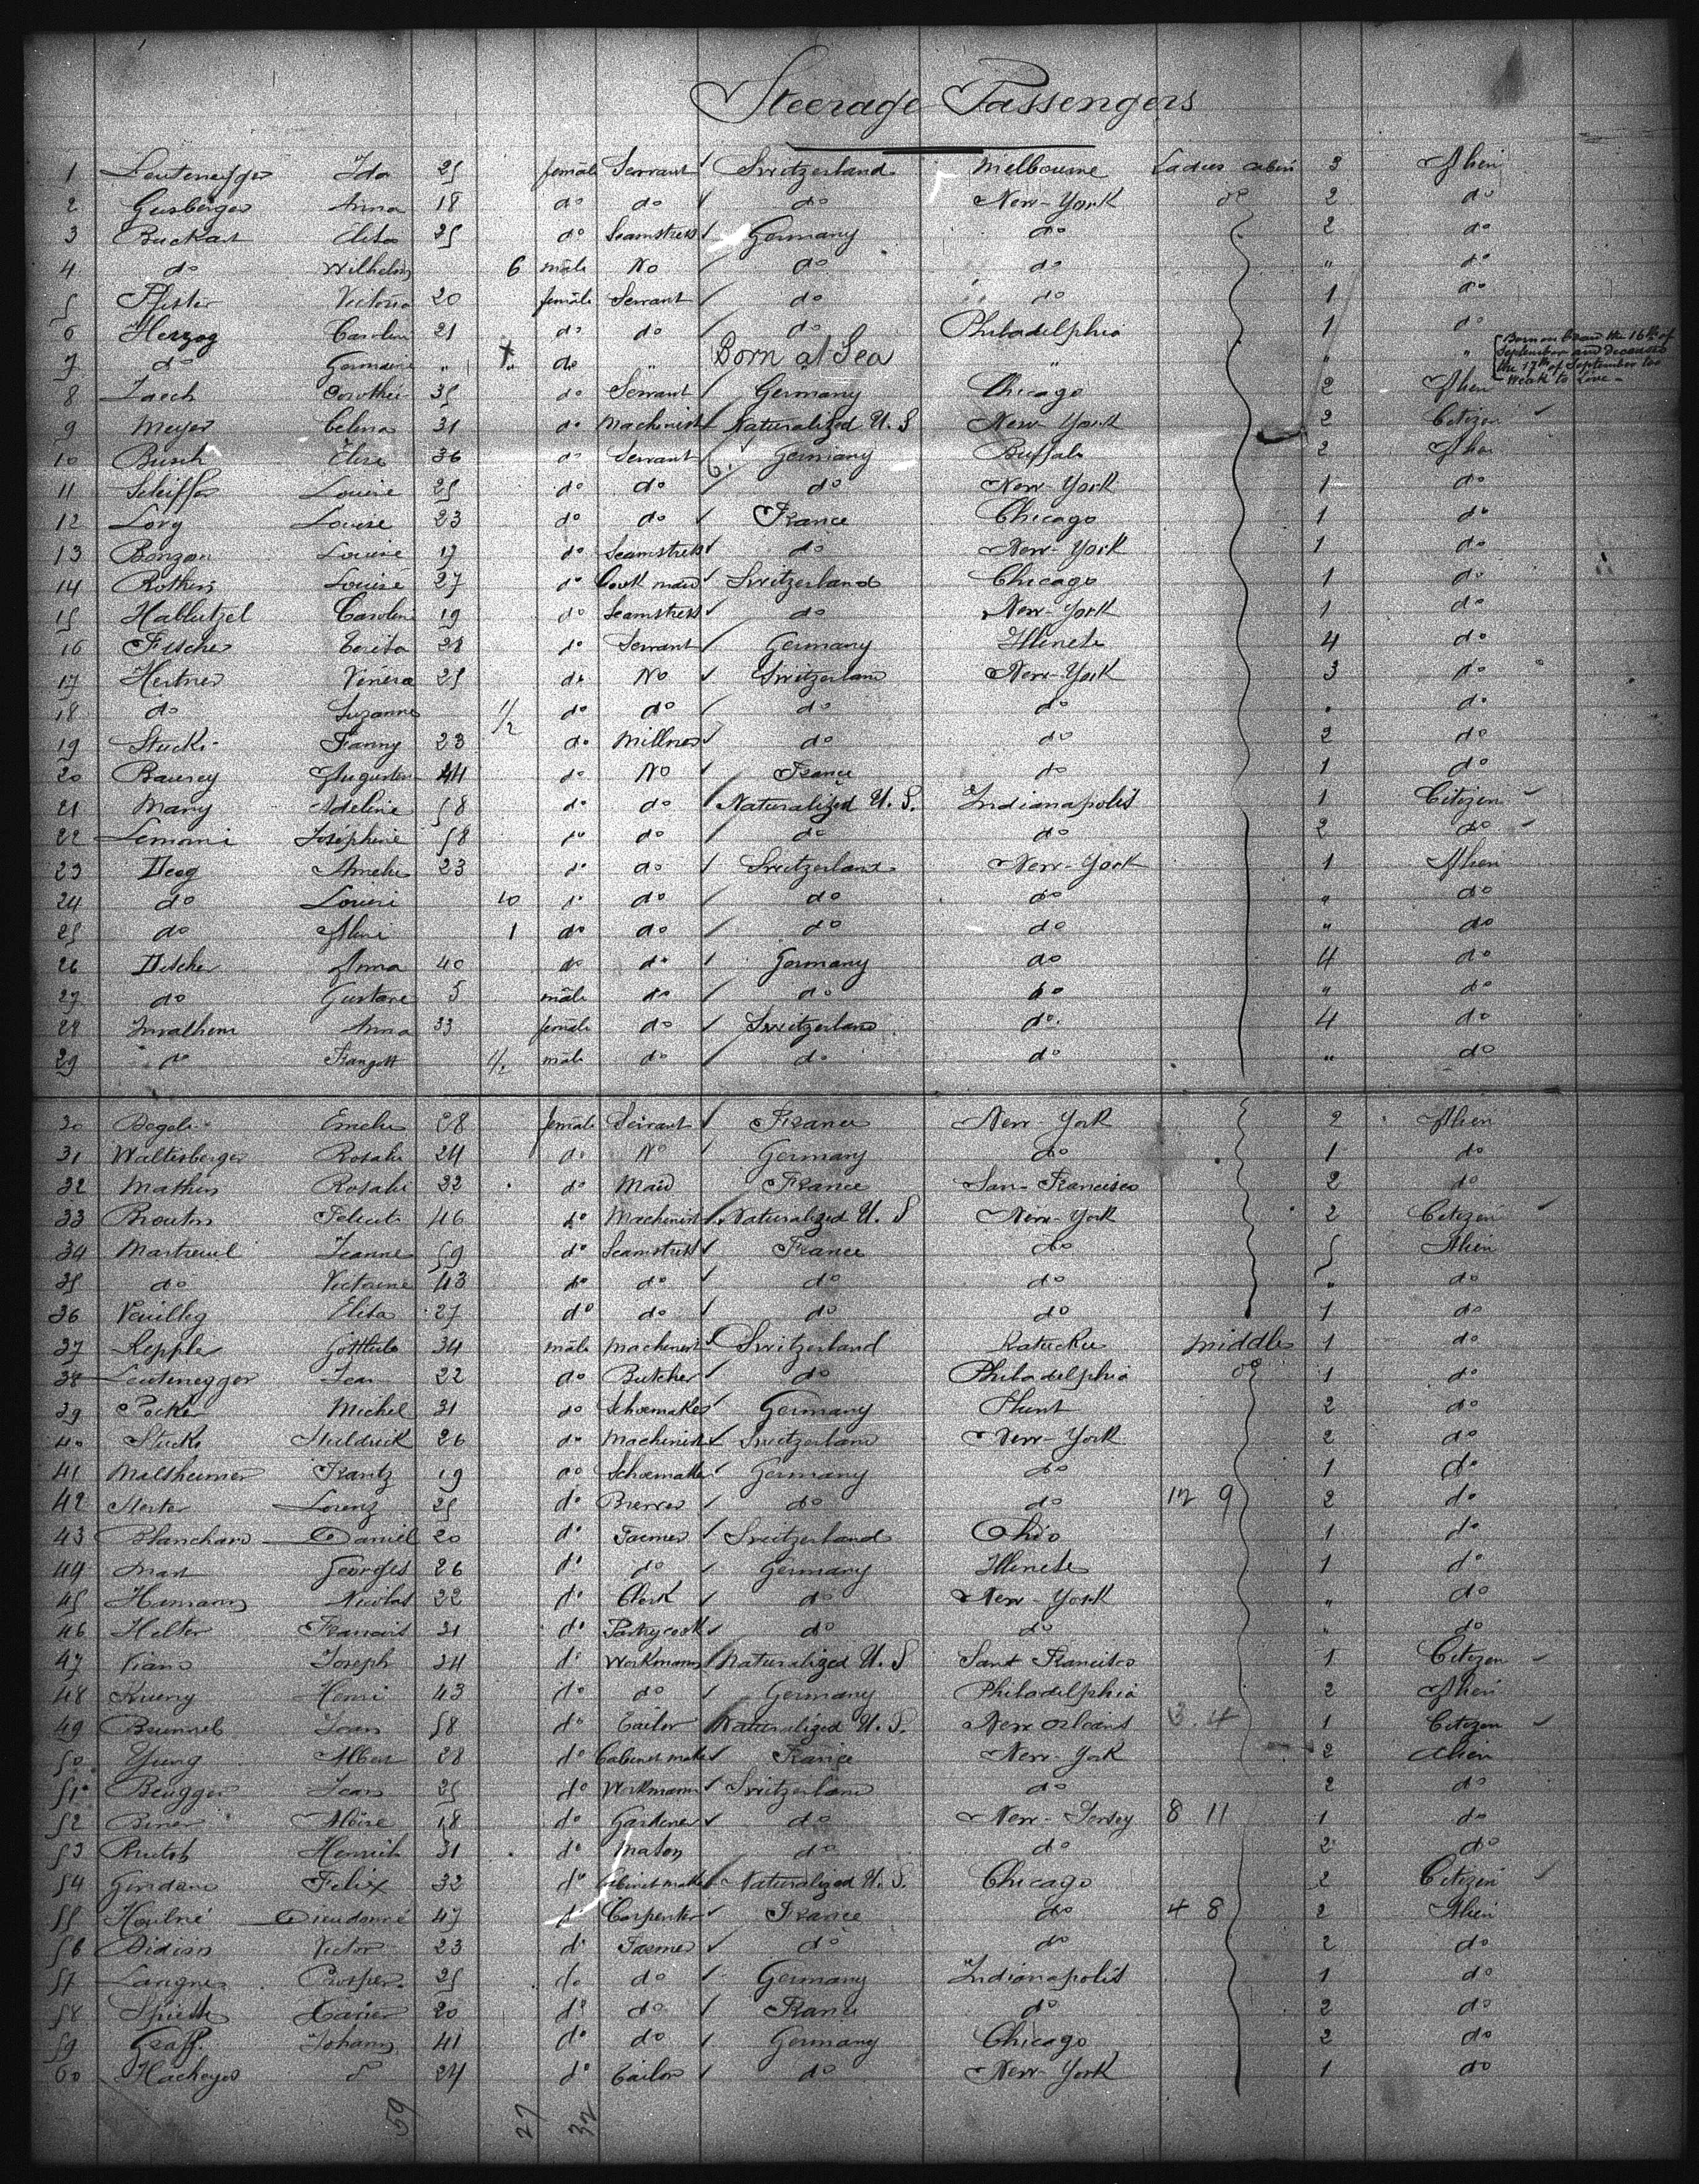 Steerage Passengers
1 Leutenegger Ida 25 female Servant Switzerland Melbourne Ladies cabin 3 Alien
2 Gusberger Anna 18 do do do New-York do 2 do
3 Buckart Elisa 25 do Seamstress Germany do 2 do
4 do Wilhelm 6 male No do do " do
5 Pfister Victoria 20 female Servant do do 1 do
6 Herzog Carolin 21 do do do Philadelphia 1 do
7 do Germaine " do " Born at Sea " " " Born on board the 16th of September and deceased the 17th of September too Weak to Live
8 Zaech Dorothie 35 do Servant Germany Chicago 2 Alien
9 Meyer Celina 31 do Machinist Naturalized U.S New York 2 Citizen
10 Busch Elise 36 do Servant Germany Buffalo 2 Alien
11 Louise 25 do do do New-York 1 do
12 Lorg Louise 23 do do France Chicago 1 do
13 Bonzon Louise 17 do Seamstress do New-York 1 do
14 Louise 27 do Cook maid Switzerland Chicago 1 do
15 Hablutzel Carolin 19 do Seamstress do New-York 1 do
16 Fischer 28 do Servant Germany Illinets 4 do
17 Hertner Vénéra 25 do No Switzerland New-York 3 do
18 do Suzanne 1/2 do do do do do
19 Stucki Fanny 23 do Millner do do 2 do
20 Baurey Augustin 44 do No France do 1 do
21 Many Adeline 58 do do Naturalized U.S. Indianapolis 1 Citizen
22 Lemoni Joséphine 58 do do do do 2 do
23 Heeg Amelie 23 do do Switzerland New-York 1 Alien
24 do Louise 10 do do do do " do
25 do Aline 1 do do do do " do
26 Anna 40 do do Germany do 4 do
27 do Gustave 5 male do do do " do
28 Anna 33 female do Switzerland do. 4 do
29 do male do do do " do
30 Degeli Emelie 28 female Servant France New-York 2 Alien
31 Waltisberger Rosalie 24 do No Germany do 1 do
32 Mathis Rosalie 22 do Maid France San-Francisco 2 do
33 46 do Machinist Naturalized U.S New-York 2 Citizen
34 Martreuil Jeanne 59 do Seamstress France do 5 Alien
35 do Victorine 43 do do do do " do
36 Elisa 27 do do do do 1 do
37 Keppler Gottlieb 34 male Machinist Switzerland Katuckie middle 1 do
38 Leutenegger Jean 22 do Butcher do Philadelphia do 1 do
39 Michel 31 do Schoemaker Germany Flunt 2 do
40 Stucki 26 do Machinist Switzerland New-York 2 do
41 Malsheimer Frantz 19 do Schoemaker Germany do 1 do
42 Lorenz 25 do Brewer do do 12 9 2 do
43 Blanchard Daniel 20 do Farmer Switzerland Ohio 1 do
44 Mart Georges 26 do do Germany Illinets 1 do
45 Hamann Nicolas 22 do Clerk do New-York " do
46 Helter Francois 21 do Pastrycook do do " do
47 Viano Joseph 24 do Workmann Naturalized U.S Sant Francisco 1 Citizen
48 Kueny Henri 43 do do Germany Philadelphia 2 Alien
49 Jean 58 do Tailor Naturalized U.S. New Orleans 3.4 1 Citizen
50 Yung Albert 28 do Cabinet maker France New-York 2 Alien
51 Brugger Jean 25 do Workmann Switzerland do 2 do
52 Biner 18 do Gardener do New-Jersey 8 11 1 do
53 Heinrich 31 do Mason do do 2 do
54 Felix 32 do Cabinet maker Naturalized U.S. Chicago 2 Citizen
55 Houlné Dieudonné 47 do Carpenter France do 4 8 2 Alien
56 Didier Victor 23 do Farmer do do 2 do
57 Prosper 25 do do Germany Indianapolis 1 do
58 Xavier 20 do do France do 2 do
59 Graff Johann 41 do do Germany Chicago 2 do
60 24 do Tailor do New-York 1 do
59 27 32